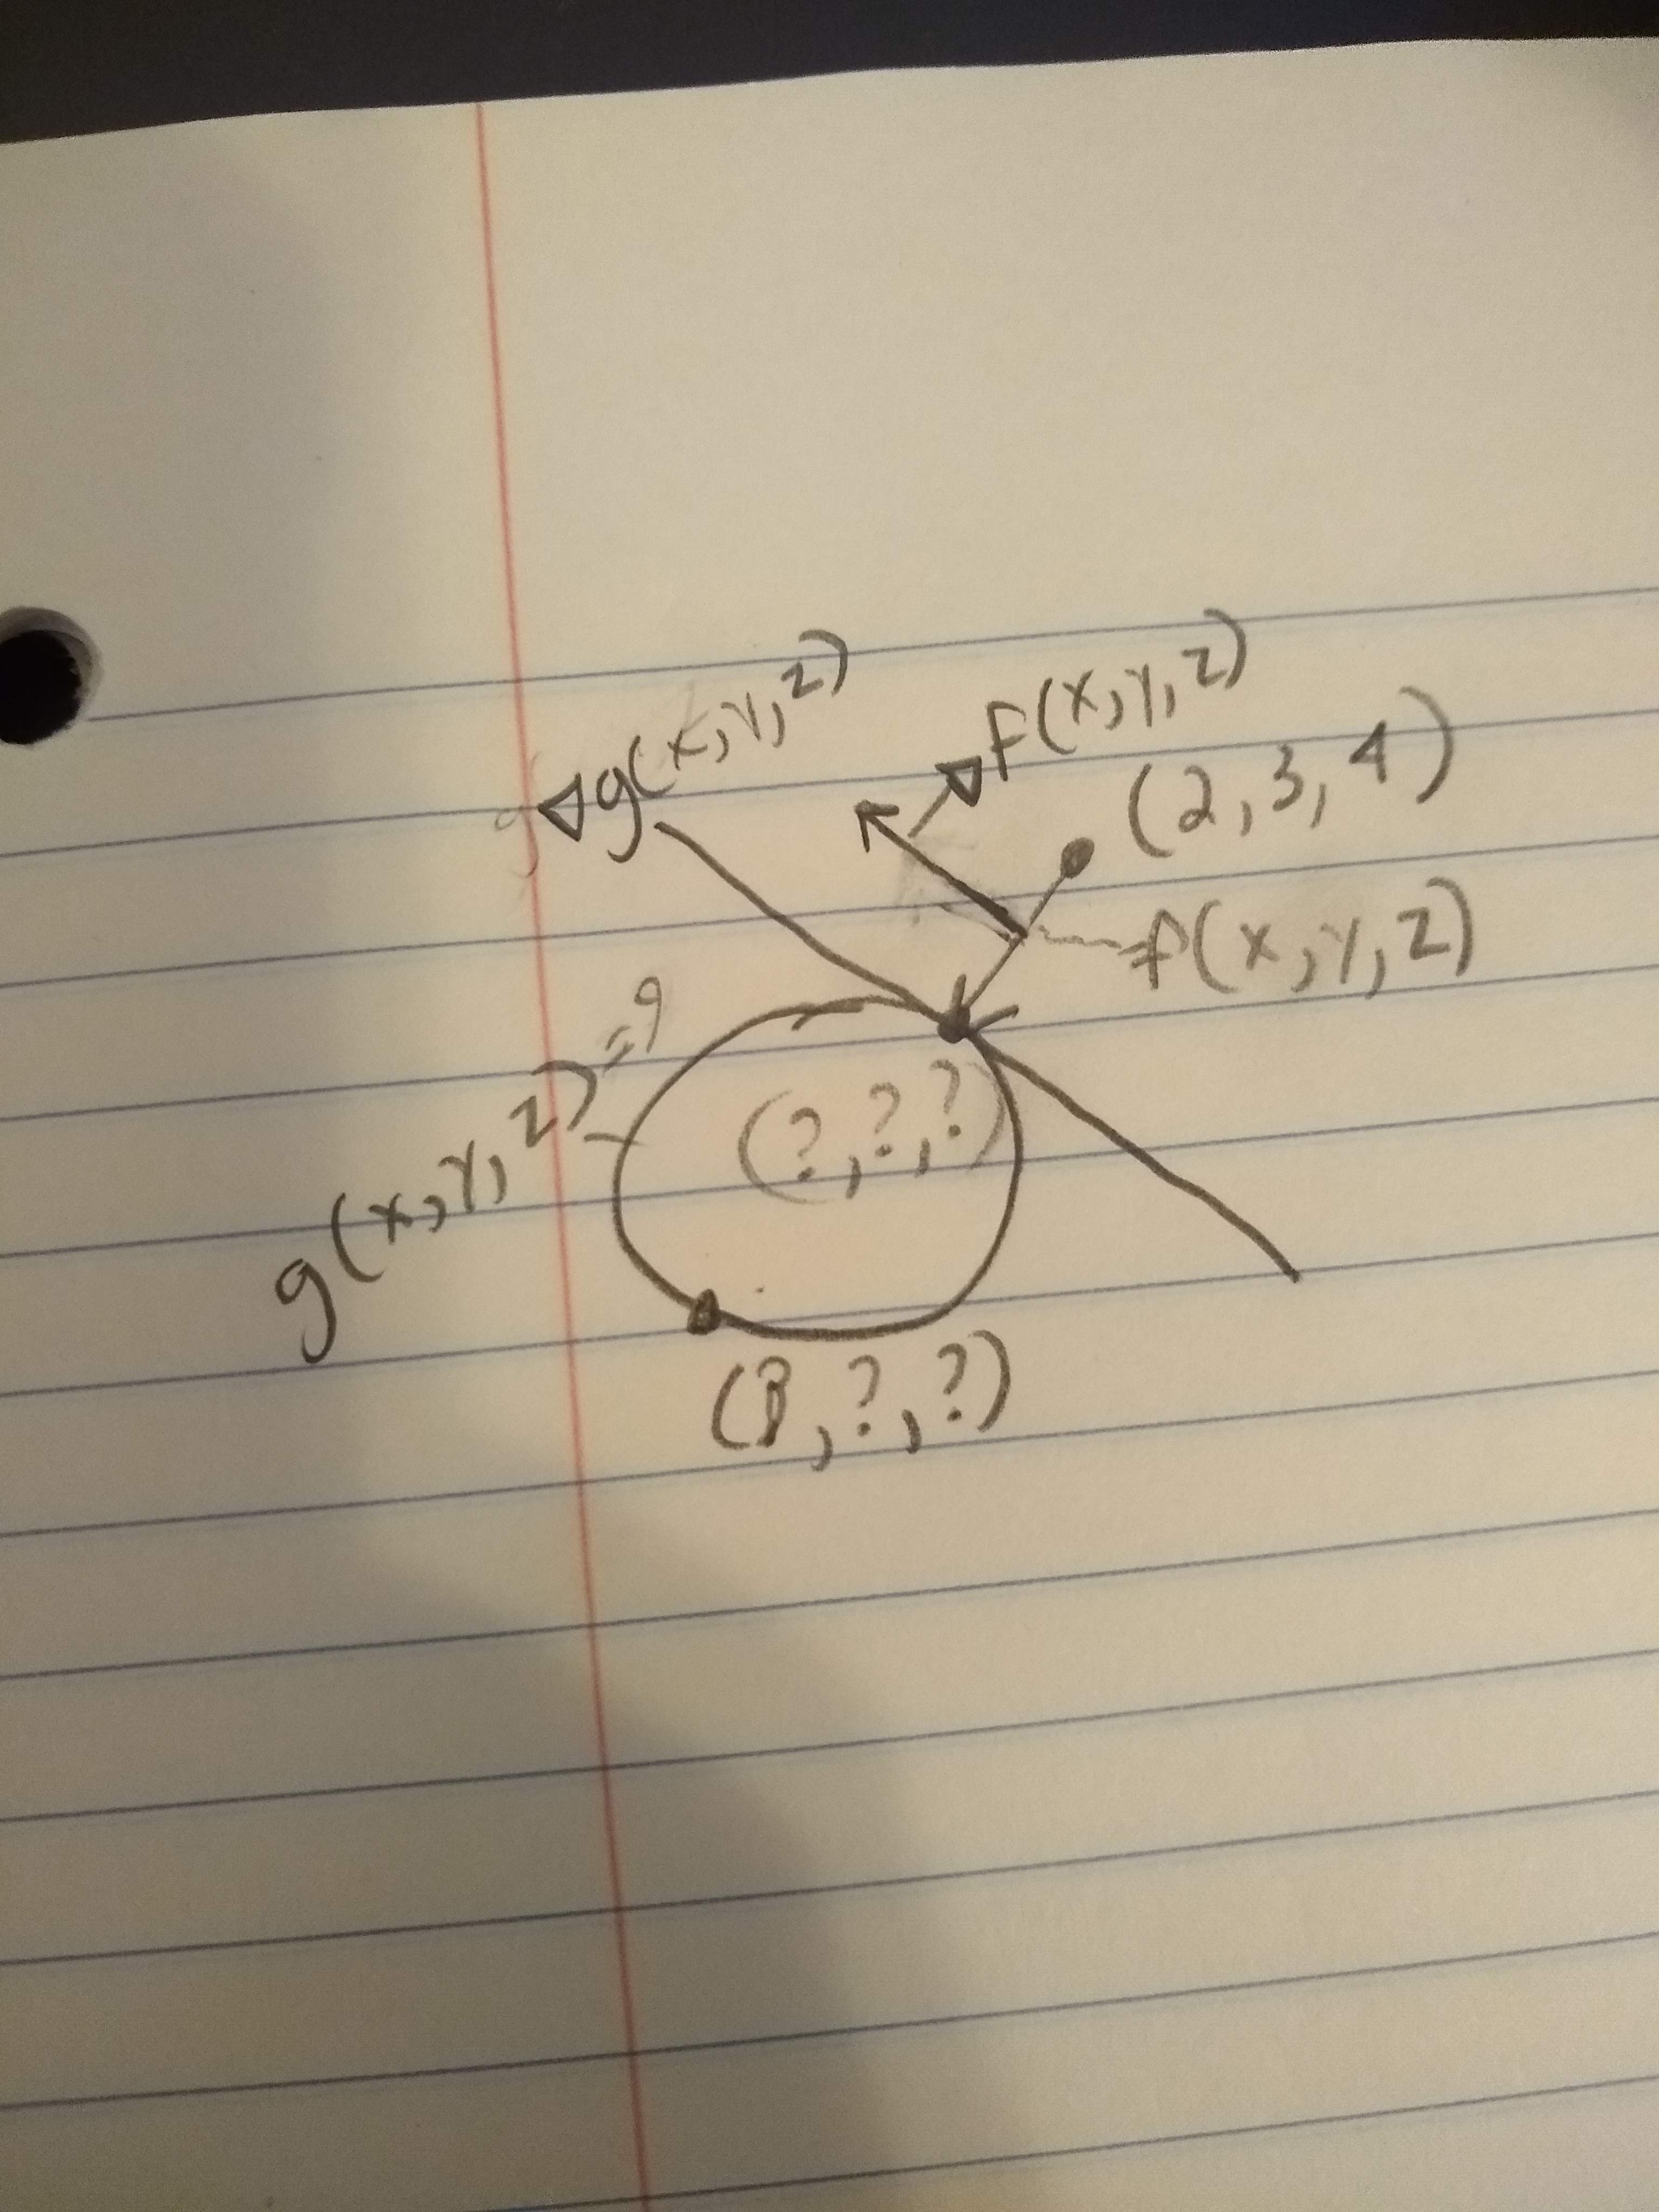 ∇g(x,y,z)
∇f(x,y,z)
(2,3,4)
f(x,y,z)
g(x,y,z)=9
(?,?,?)
(?,?,?)